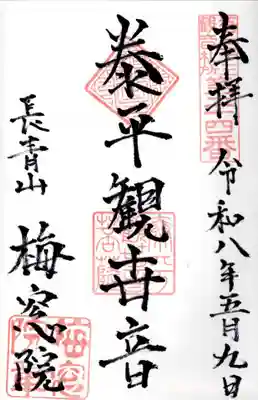 奉拝 令和八年五月九日
泰平観世音
長青山
梅窓院